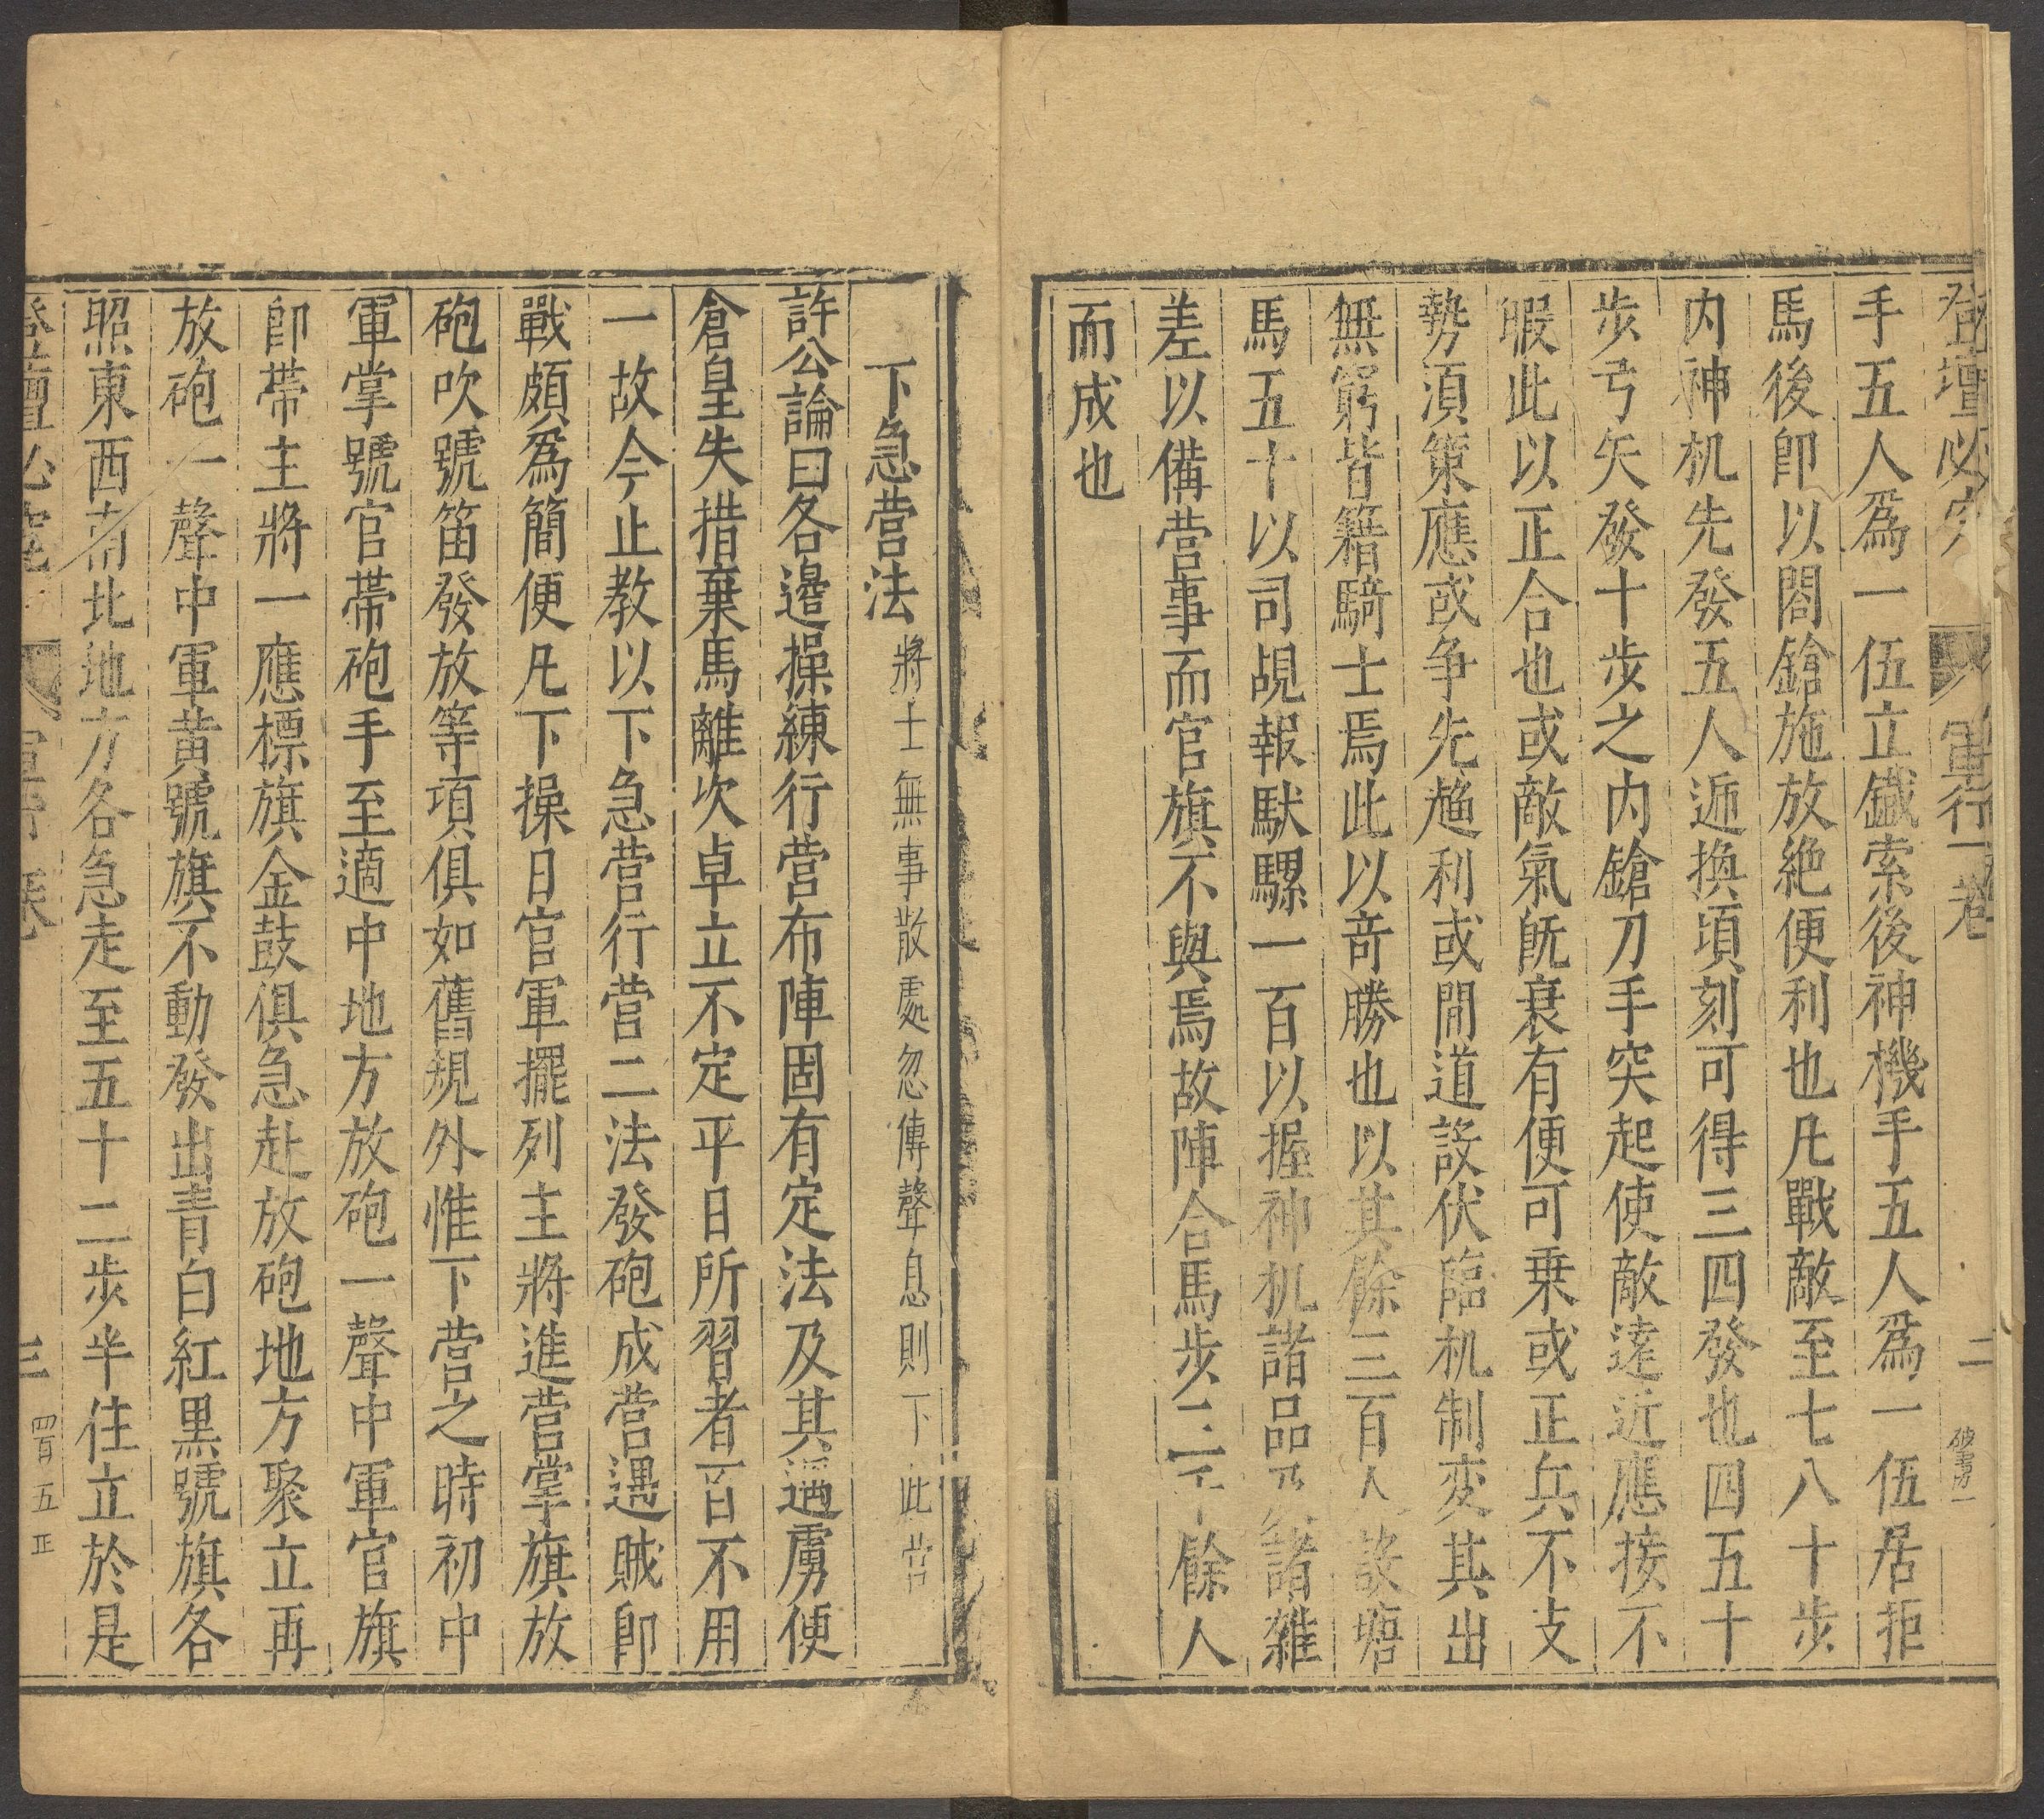 登壇必究 軍行一卷 二
手五人爲一伍立鐵索後神機手五人爲一伍居拒
馬後卽以閤鎗施放絶便利也凡戰敵至七八十步
内神机先發五人遞換頃刻可得三四發也四五十
步弓矢發十步之内鎗刀手突起使敵遠近應接不
暇此以正合也或敵氣旣衰有便可乗或正兵不支
勢湏策應或争先趨利或間道設伏臨机制变其出
無窮皆籍騎士焉此以竒勝也以其餘三百人設塘
馬五十以司覘報馱騾一百以握神机諸品 諸雜
差以備营事而官旗不與焉故陣合馬步三千餘人
而成也
下急营法 將士無事散處忽傳聲息則下此营
許公論曰各邉操練行营布陣固有定法及其遇虜便
倉皇失措棄馬離次卓立不定平日所習者百不用
一故今止教以下急营行营二法發砲成营遇贼卽
戰頗爲簡便凡下操日官軍擺列主將進营掌旗放
砲吹號笛發放等項俱如舊規外惟下营之時初中
軍掌號官帶砲手至適中地方放砲一聲中軍官旗
卽帶主將一應標旗金鼓俱急赴放砲地方聚立再
放砲一聲中軍黄號旗不動發出青白紅黑號旗各
照東西南北地方各急走至五十二步半住立於是
登壇必究 三 四百五正